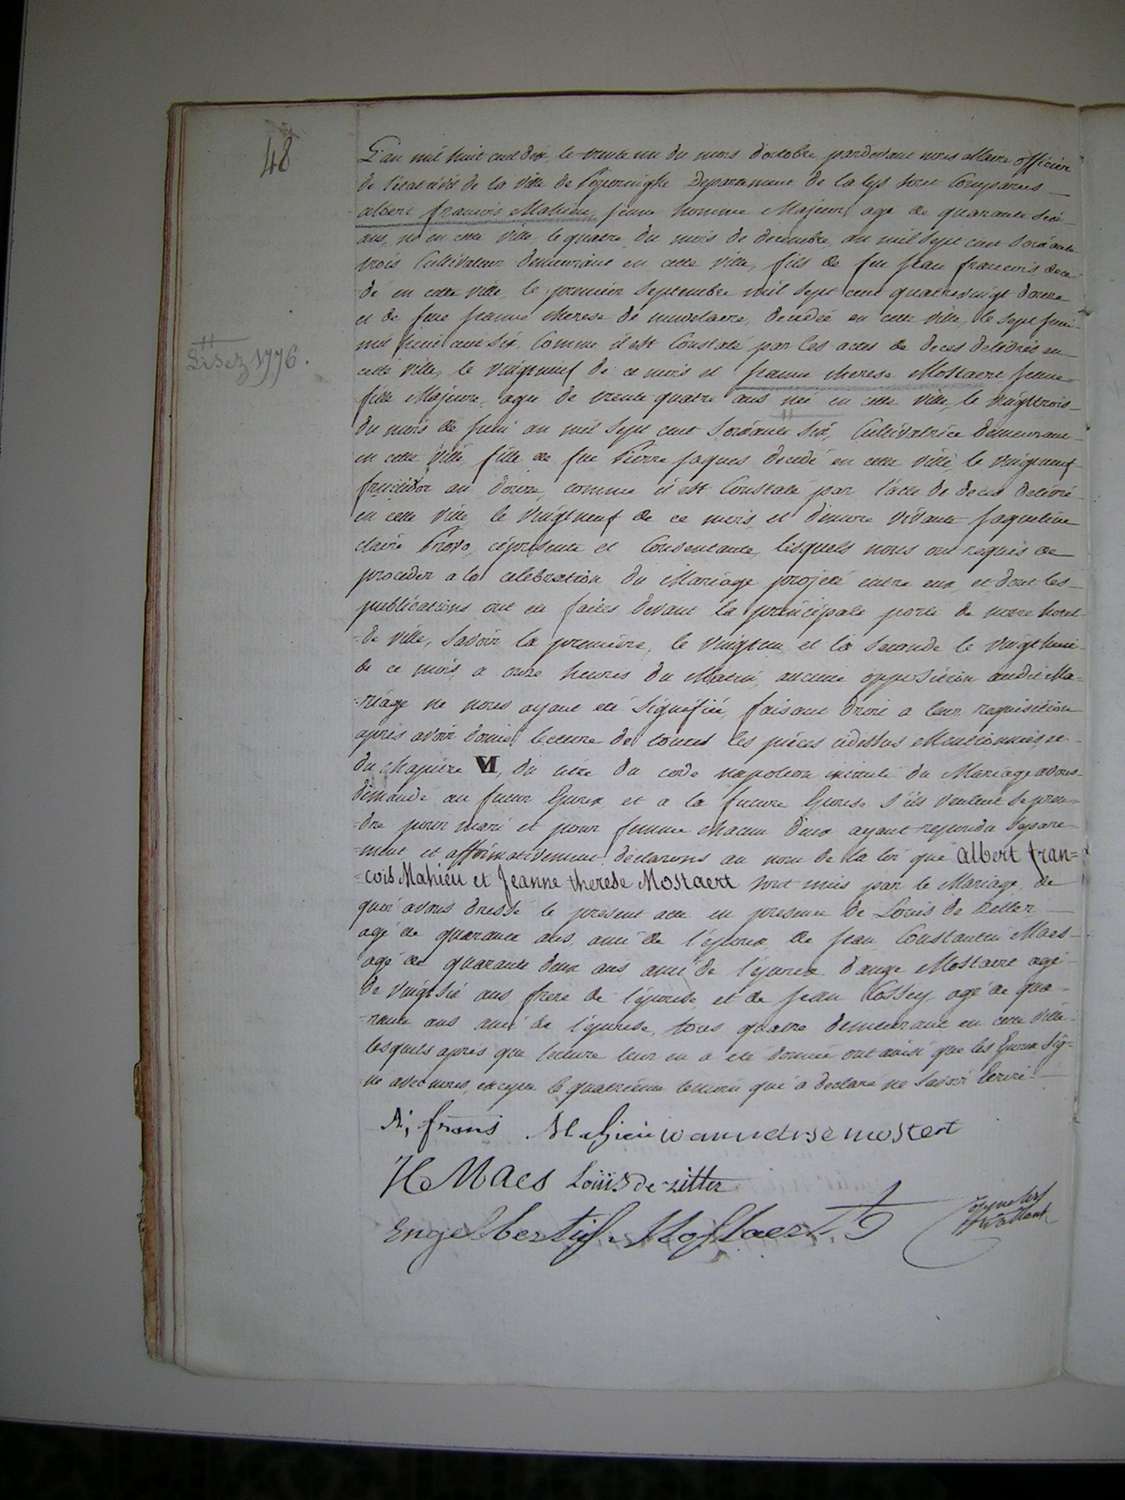 48
L'an mil huit cent dix, le trente un du mois d'octobre pardevant nous allaire officier
de l'etat civil de la ville de Poperinghe Departement de la Lys sont Comparus
albert francois Mahieu, jeune homme Majeur, agé de quarante six
ans, né en cette ville, le quatre du mois de decembre, an mil sept cent soixante
trois Cultivateur demeurant en cette ville, fils de feu jean francois dece-
dé en cette ville, le premier septembre mil sept cent quatrevingt douze
et de feue jeanne therese de, decedée en cette ville, le sept juin
mil huit cent six, Comme il est Constaté par les actes de deces delivrés en
Lisez 1776.
cette ville, le vingtneuf de ce mois et jeanne therese Mostaert jeune
fille Majeure, agée de trente quatre ans née en cette ville, le vingttrois
du mois de juin an mil sept cent soixante six, Cultivatrice demeurant
en cette ville, fille de feu Pierre jaques decedé en cette ville le vingtneuf
fructidor an douze, comme il est Constaté par l'acte de deces delivré
en cette ville, le vingtneuf de ce mois et d'encore vivante jaqueline
claire Provo, cipresente et Consentante, lesquels nous ont requis de
proceder a la celebration du Mariage projeté entre eux et dont les
publications ont été faites devant la principale porte de notre hotel
de ville, Savoir la premiere, le vingtun et la seconde le vingthuit
de ce mois a onze heures du Matin, aucune opposition audit Ma-
riage ne nous ayant été signifiée, faisant droit a leur requisition
apres avoir donné lecture de toutes les pieces cidessus Mentionnées, et
du chapitre VI, du titre du code napoleon intitulé du Mariage avons
demandé au futur Epoux et a la future Epouse s'ils veulent se pren-
dre pour mari et pour femme chacun d'eux ayant repondu separe-
ment et affirmativement declarons au nom de la loi que albert fran=
=cois Mahieu et Jeanne therese Mostaert sont unis par le Mariage, de
quoi avons dressé le present acte en presence de Louis de Zitter
agé de quarante ans, ami de l'epoux, de jean Constantin Maes
agé de quarante deux ans ami de l'epoux d'ange Mostaert agé
de vingt six ans frere de l'epouse et de jean Cossey agé de qua-
rante ans ami de l'epouse, tous quatre demeurant en cette ville
lesquels apres que lecture leur en a été donnée ont ainsi que les Epoux sig-
né avec nous, excepté le quatrieme temoin qui a declaré ne savoir Ecrire.
A, frans Mahieu joanne terse mostert
JC Maes Louis de zitter
Engelbertus Mostaert